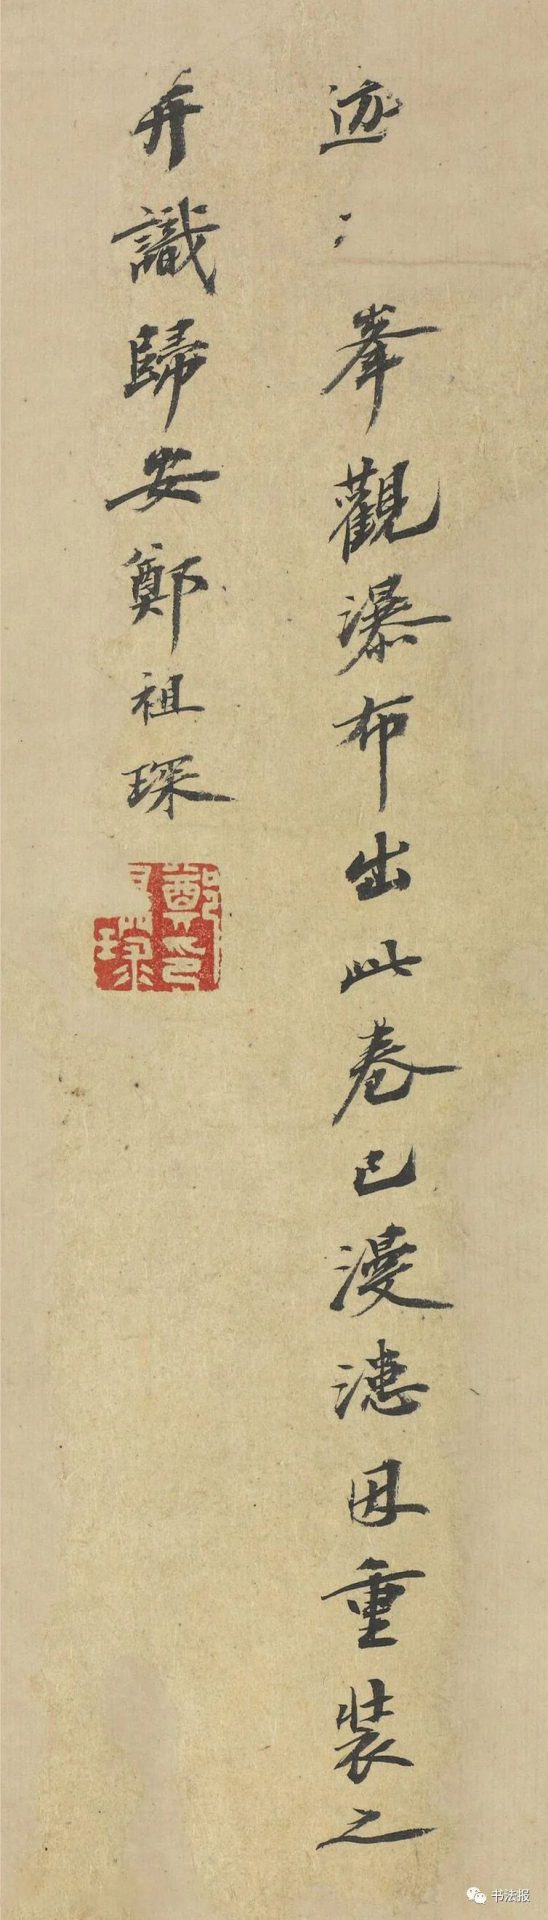 迹〻峯觀瀑布出此卷已漫漶因重裝之
并識歸安鄭祖琛
書法报